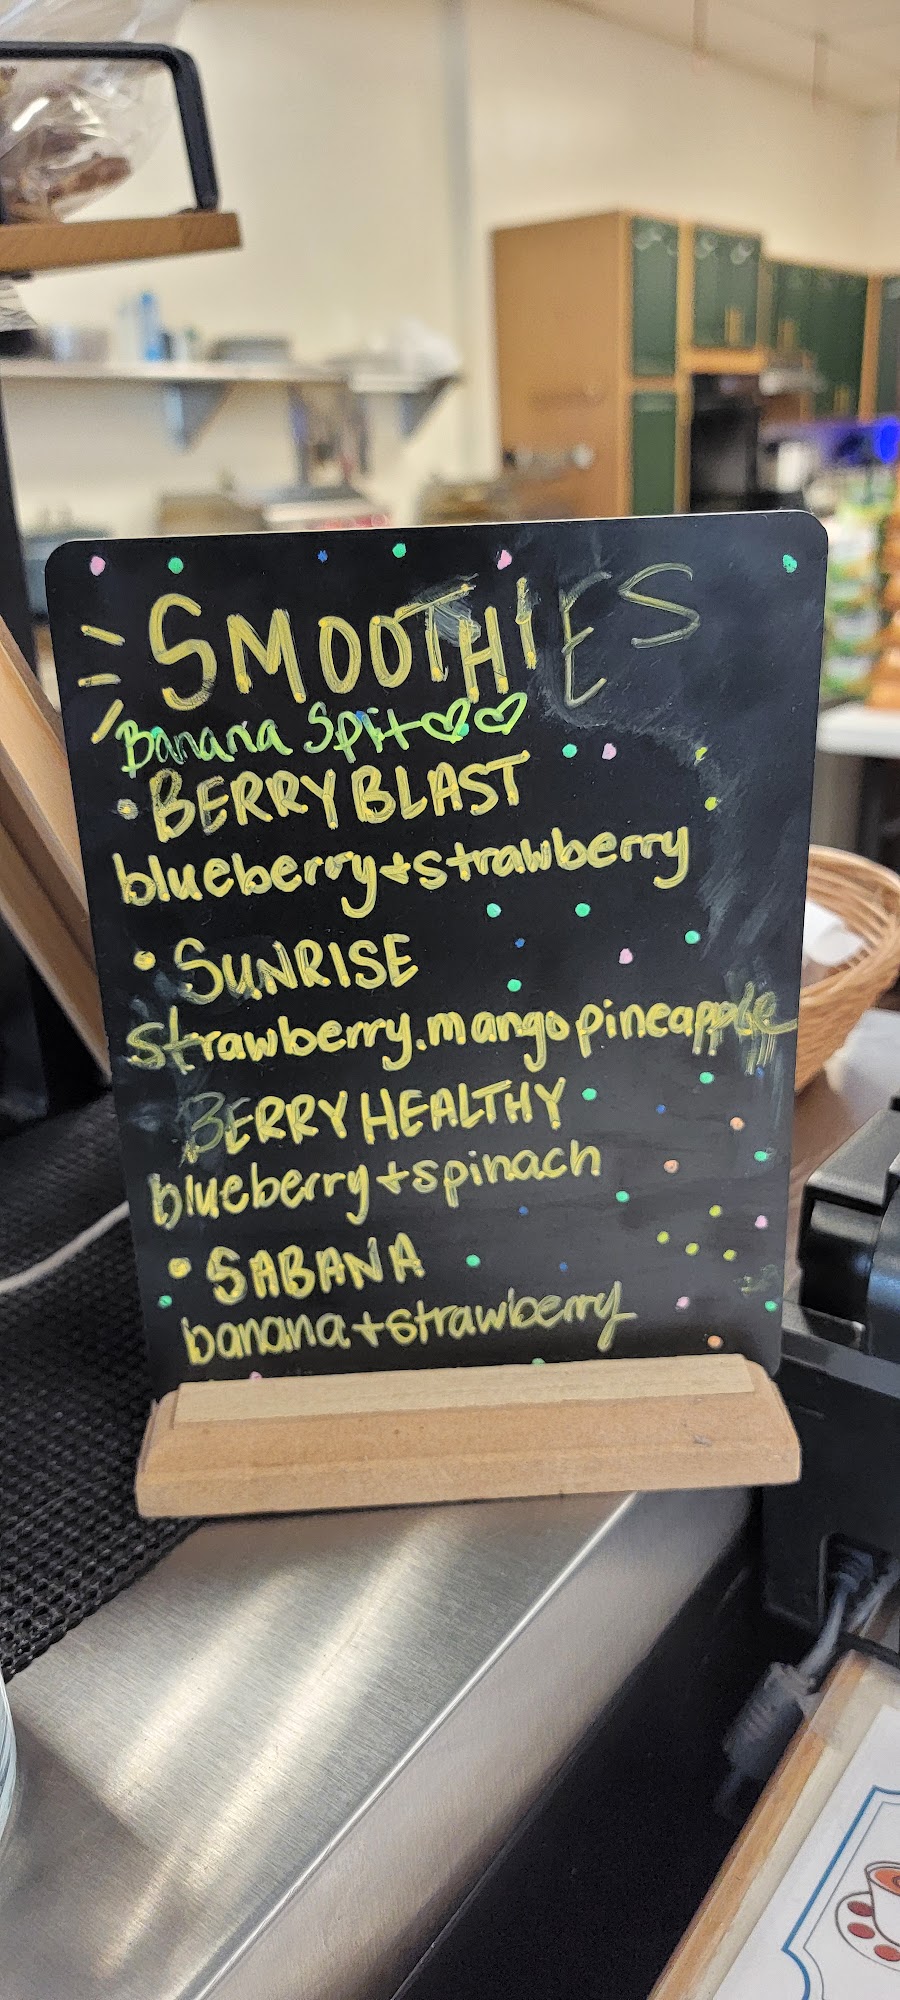 SMOOTHIES
Banana Spit♡♡
• BERRY BLAST
blueberry+strawberry
• SUNRISE
strawberry.mango pineapple
BERRY HEALTHY
blueberry+spinach
• SABANA
banana+strawberry